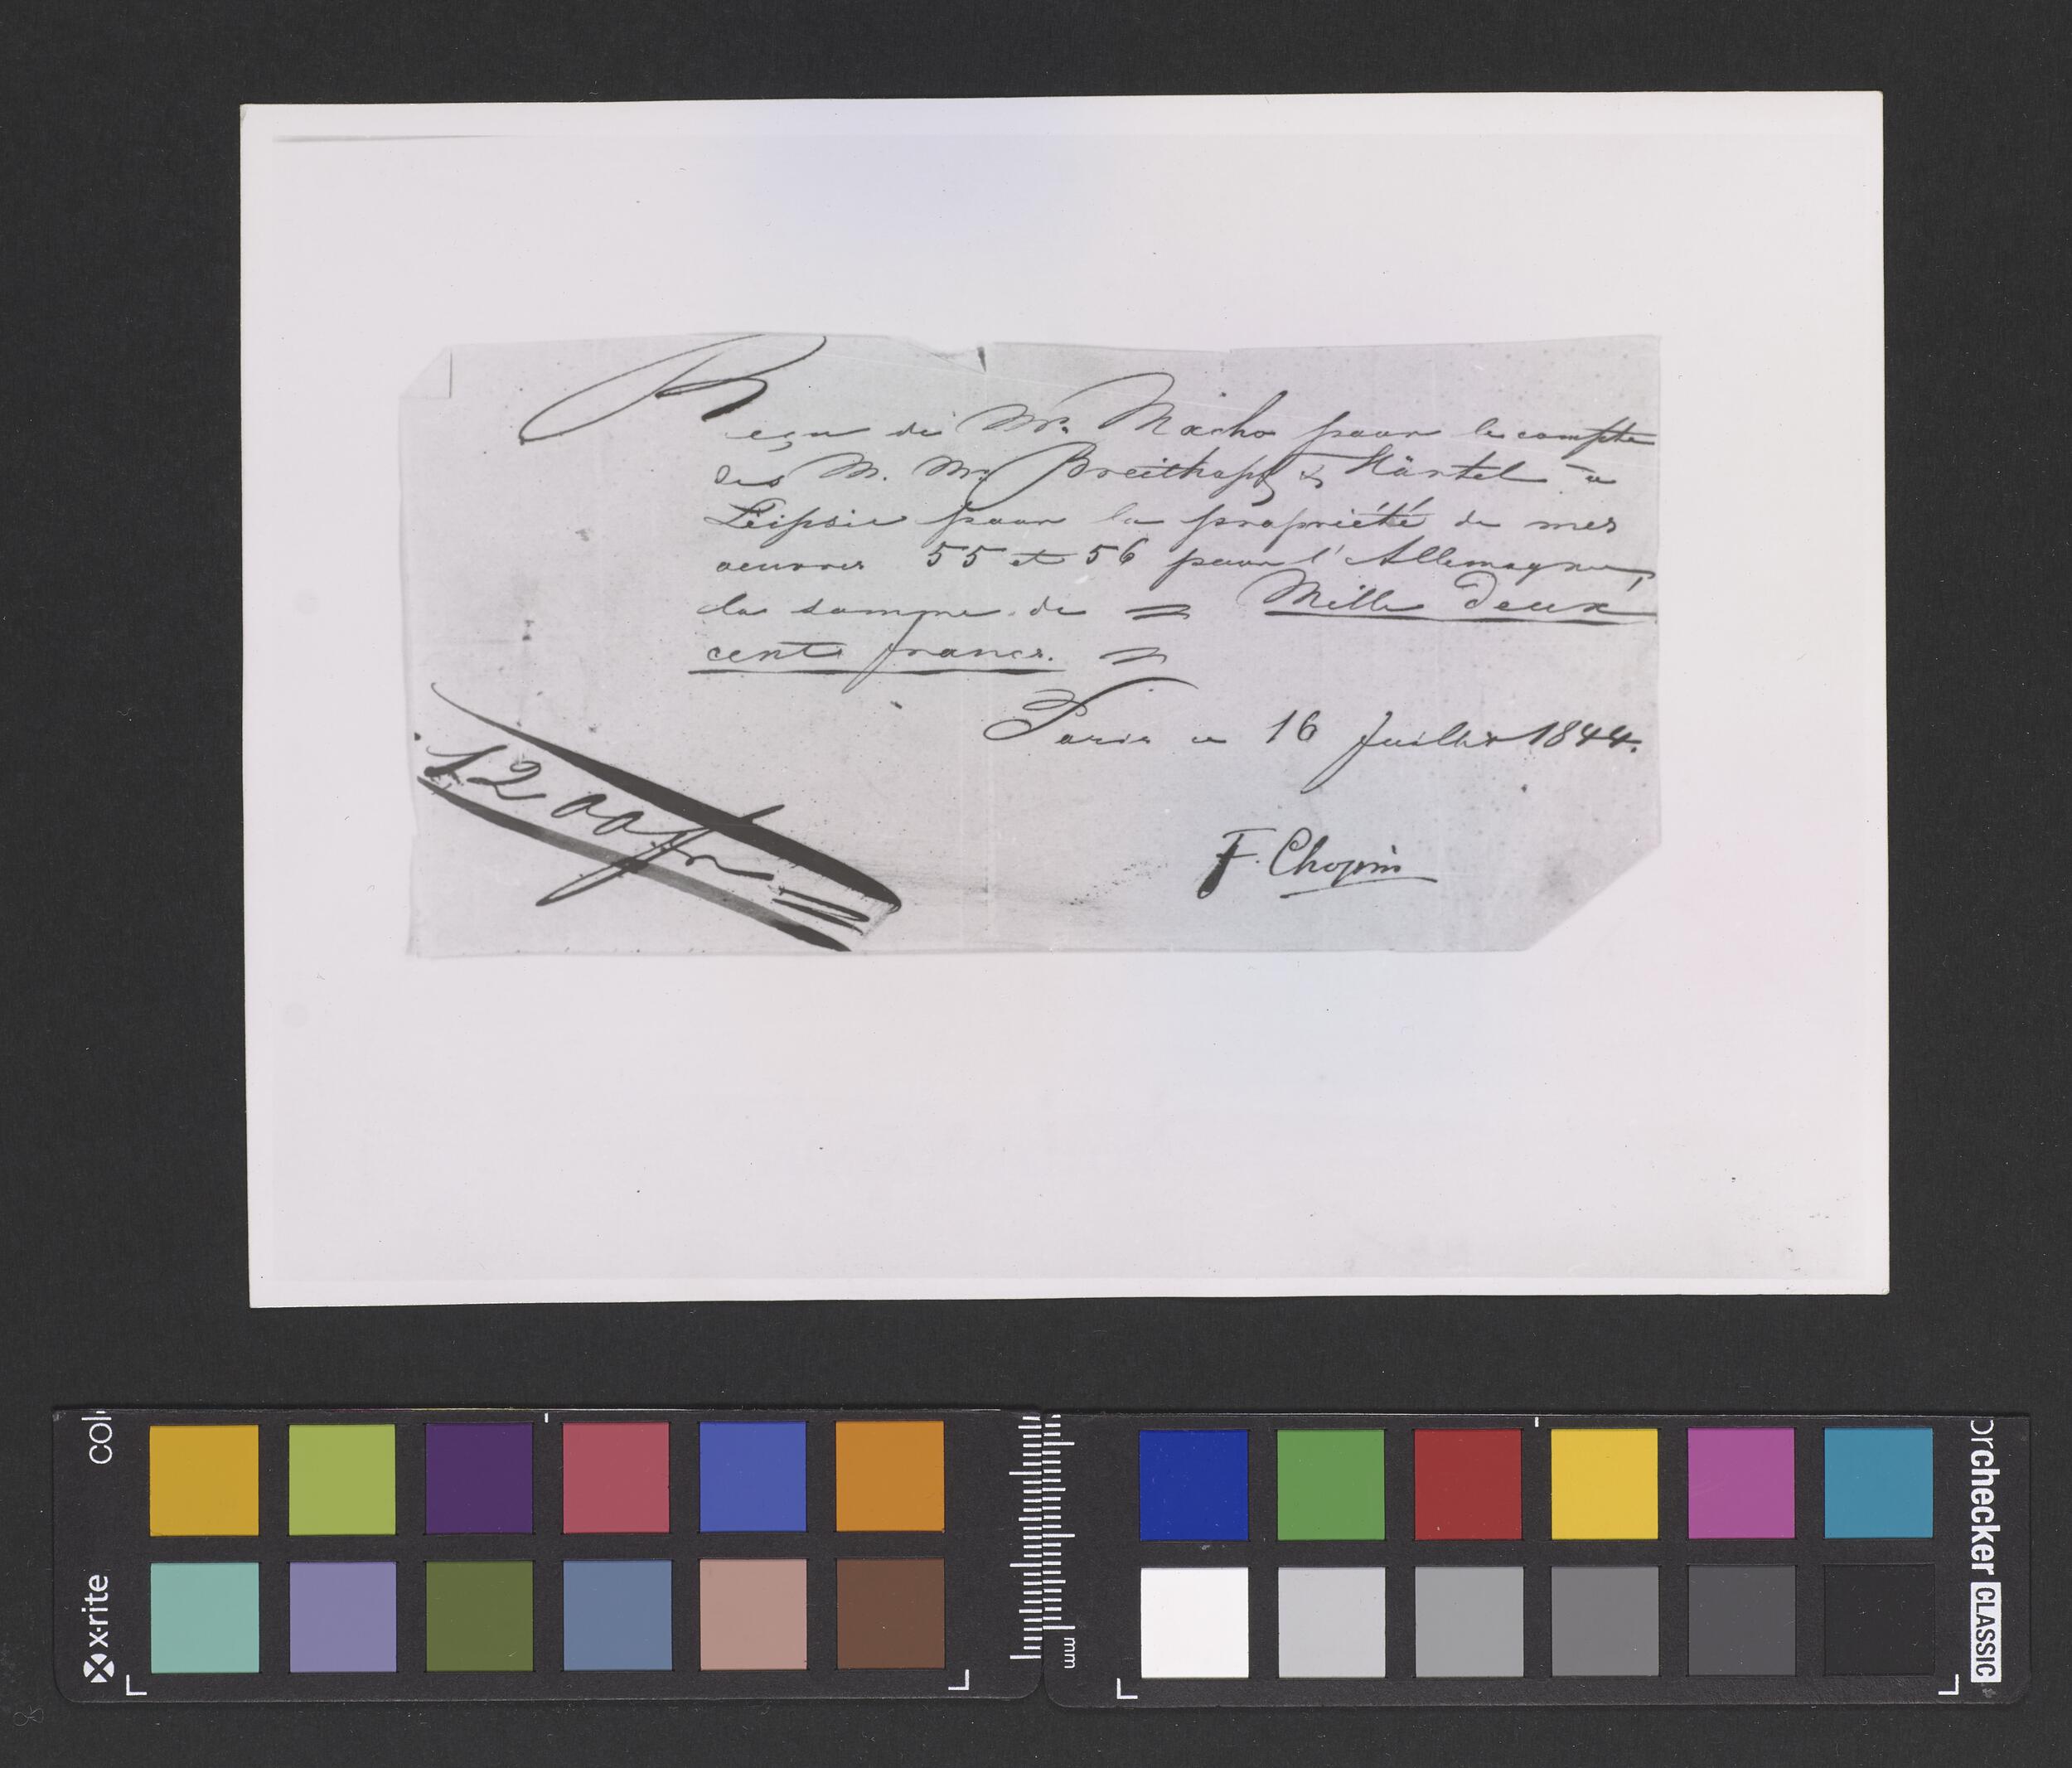 Reçu de Mr. Mácho pour le compte
des M. Mr. Breitkopf & Härtel à
Leipsic pour la propriété de mes
oeuvres 55 et 56 pour l'Allemagne,
la somme de = Mille deux
cents francs. =
Paris ce 16 Juillet 1844.
1200 fr =
F. Chopin
x·rite
mm
orchecker CLASSIC
col